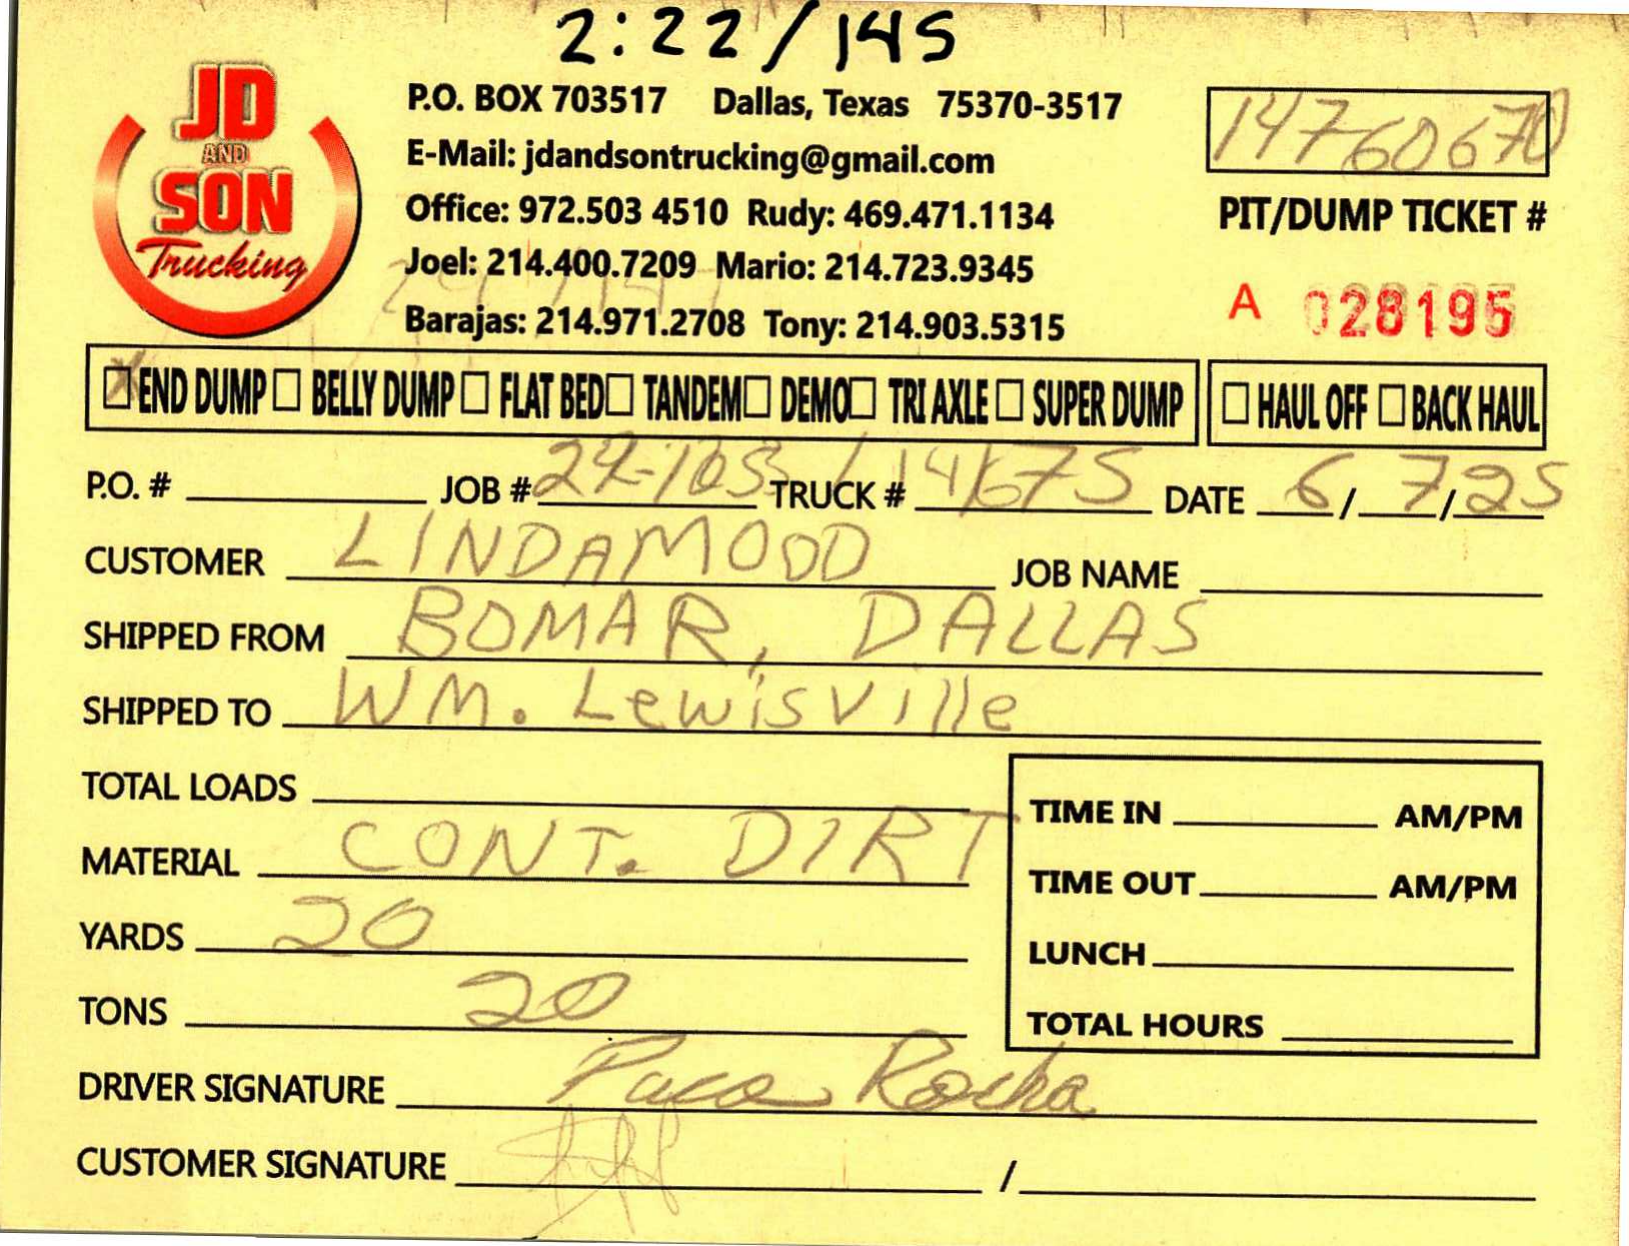 2:22/145
JD AND SON Trucking
P.O. BOX 703517 Dallas, Texas 75370-3517
E-Mail: jdandsontrucking@gmail.com
Office: 972.503 4510 Rudy: 469.471.1134
Joel: 214.400.7209 Mario: 214.723.9345
Barajas: 214.971.2708 Tony: 214.903.5315
14760670
PIT/DUMP TICKET #
A 028195
END DUMP BELLY DUMP FLAT BED TANDEM DEMO TRI AXLE SUPER DUMP HAUL OFF BACK HAUL
P.O. # JOB # 24-103 TRUCK # 14675 DATE 6/7/25
CUSTOMER LINDAMOOD JOB NAME
SHIPPED FROM BOMAR, DALLAS
SHIPPED TO WM. Lewisville
TOTAL LOADS
MATERIAL CONT. DIRT
YARDS 20
TONS 20
TIME IN AM/PM
TIME OUT AM/PM
LUNCH
TOTAL HOURS
DRIVER SIGNATURE Paco Rocha
CUSTOMER SIGNATURE /